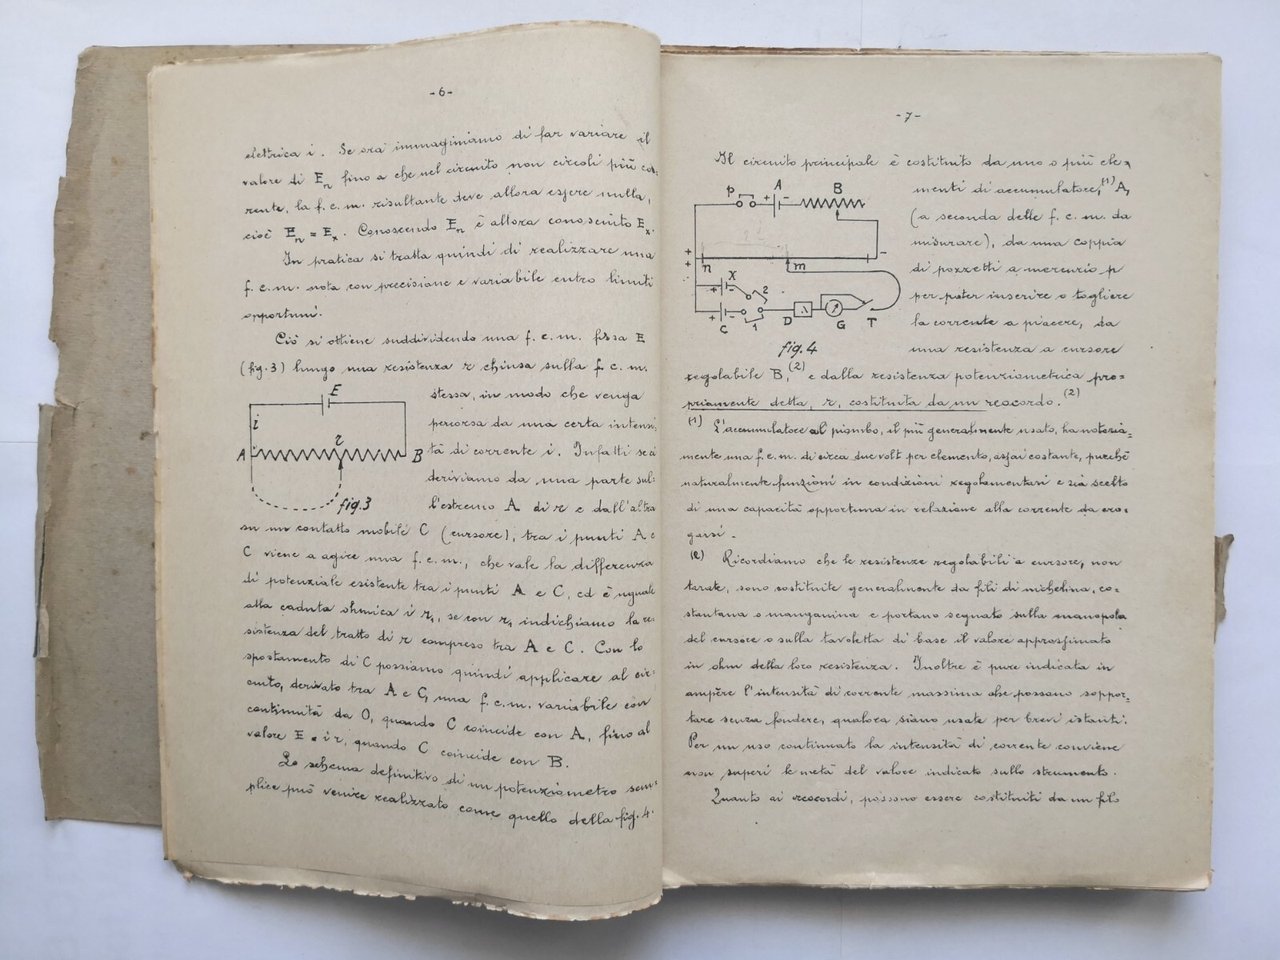 -6-
elettrica i. Se ora immaginiamo di far variare il
valore di En fino a che nel circuito non circoli più cor=
rente, la f.e.m. risultante deve allora essere nulla,
cioè En = Ex. Conoscendo En è allora conosciuto Ex.
In pratica si tratta quindi di realizzare una
f.e.m. nota con precisione e variabile entro limiti
opportuni.
Ciò si ottiene suddividendo una f.e.m. fissa E
(fig.3) lungo una resistenza r chiusa sulla f.e.m.
stessa, in modo che venga
percorsa da una certa intensi
tà di corrente i. Infatti se
deriviamo da una parte sul=
l'estremo A di r e dall'altra
E
i
A
r
B
fig.3
su un contatto mobile C (cursore), tra i punti A e
C viene a agire una f.e.m., che vale la differenza
di potenziale esistente tra i punti A e C, ed è uguale
alla caduta ohmica i r1, se con r1 indichiamo la re=
sistenza del tratto di r compreso tra A e C. Con lo
spostamento di C possiamo quindi applicare al cir=
cuito, derivato tra A e C, una f.e.m. variabile con
continuità da 0, quando C coincide con A, fino al
valore E = i r, quando C coincide con B.
Lo schema definitivo di un potenziometro sem=
plice può venire realizzato come quello della fig.4.
-7-
Il circuito principale è costituito da uno o più ele=
menti di accumulatore,(1) A,
(a seconda delle f.e.m. da
misurare), da una coppia
di pozzetti a mercurio p
per poter inserire o togliere
la corrente a piacere, da
una resistenza a cursore
P
+ A -
B
+
+
n
m
-
+ X -
2
+ C -
1
D
G
T
fig.4
regolabile B,(2) e dalla resistenza potenziometrica pro=
priamente detta, r, costituita da un reocordo.(2)
(1) L'accumulatore al piombo, il più generalmente usato, ha notoria=
mente una f.e.m. di circa due volt per elemento, assai costante, purchè
naturalmente funzioni in condizioni regolamentari e sia scelto
di una capacità opportuna in relazione alla corrente da ero=
garsi.
(2) Ricordiamo che le resistenze regolabili a cursore, non
tarate, sono costituite generalmente da fili di nichelina, co=
stantana o manganina e portano segnato sulla manopola
del cursore o sulla tavoletta di base il valore approssimato
in ohm della loro resistenza. Inoltre è pure indicata in
ampère l'intensità di corrente massima che possano soppor=
tare senza fondere, qualora siano usate per brevi istanti.
Per un uso continuato la intensità di corrente conviene
non superi la metà del valore indicato sullo strumento.
Quanto ai reocordi, possono essere costituiti da un filo